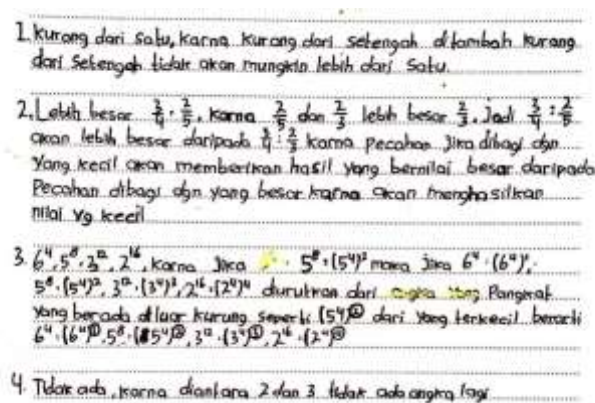 1. Kurang dari satu, karna kurang dari setengah ditambah kurang
dari setengah tidak akan mungkin lebih dari satu.
2. Lebih besar 3/4 : 2/5, karna 2/5 dan 2/3 lebih besar 2/3, Jadi 3/4 : 2/5
akan lebih besar daripada 3/4 : 2/3 karna pecahan jika dibagi dgn
yang kecil akan memberikan hasil yang bernilai besar daripada
Pecahan dibagi dgn yang besar karna akan menghasilkan
nilai yg kecil
3. 6⁴, 5⁸, 3¹², 2¹⁶, karna jika 5⁸ = (5⁴)² maka jika 6⁴ = (6⁴)¹,
5⁸ = (5⁴)², 3¹² = (3⁴)³, 2¹⁶ = (2⁴)⁴ diurutkan dari Pangkat
yang berada diluar kurung seperti (5⁴)② dari yang terkecil berarti
6⁴ = (6⁴)①, 5⁸ = (5⁴)②, 3¹² = (3⁴)③, 2¹⁶ = (2⁴)④
4. Tidak ada, karna diantara 2 dan 3 tidak ada angka lagi